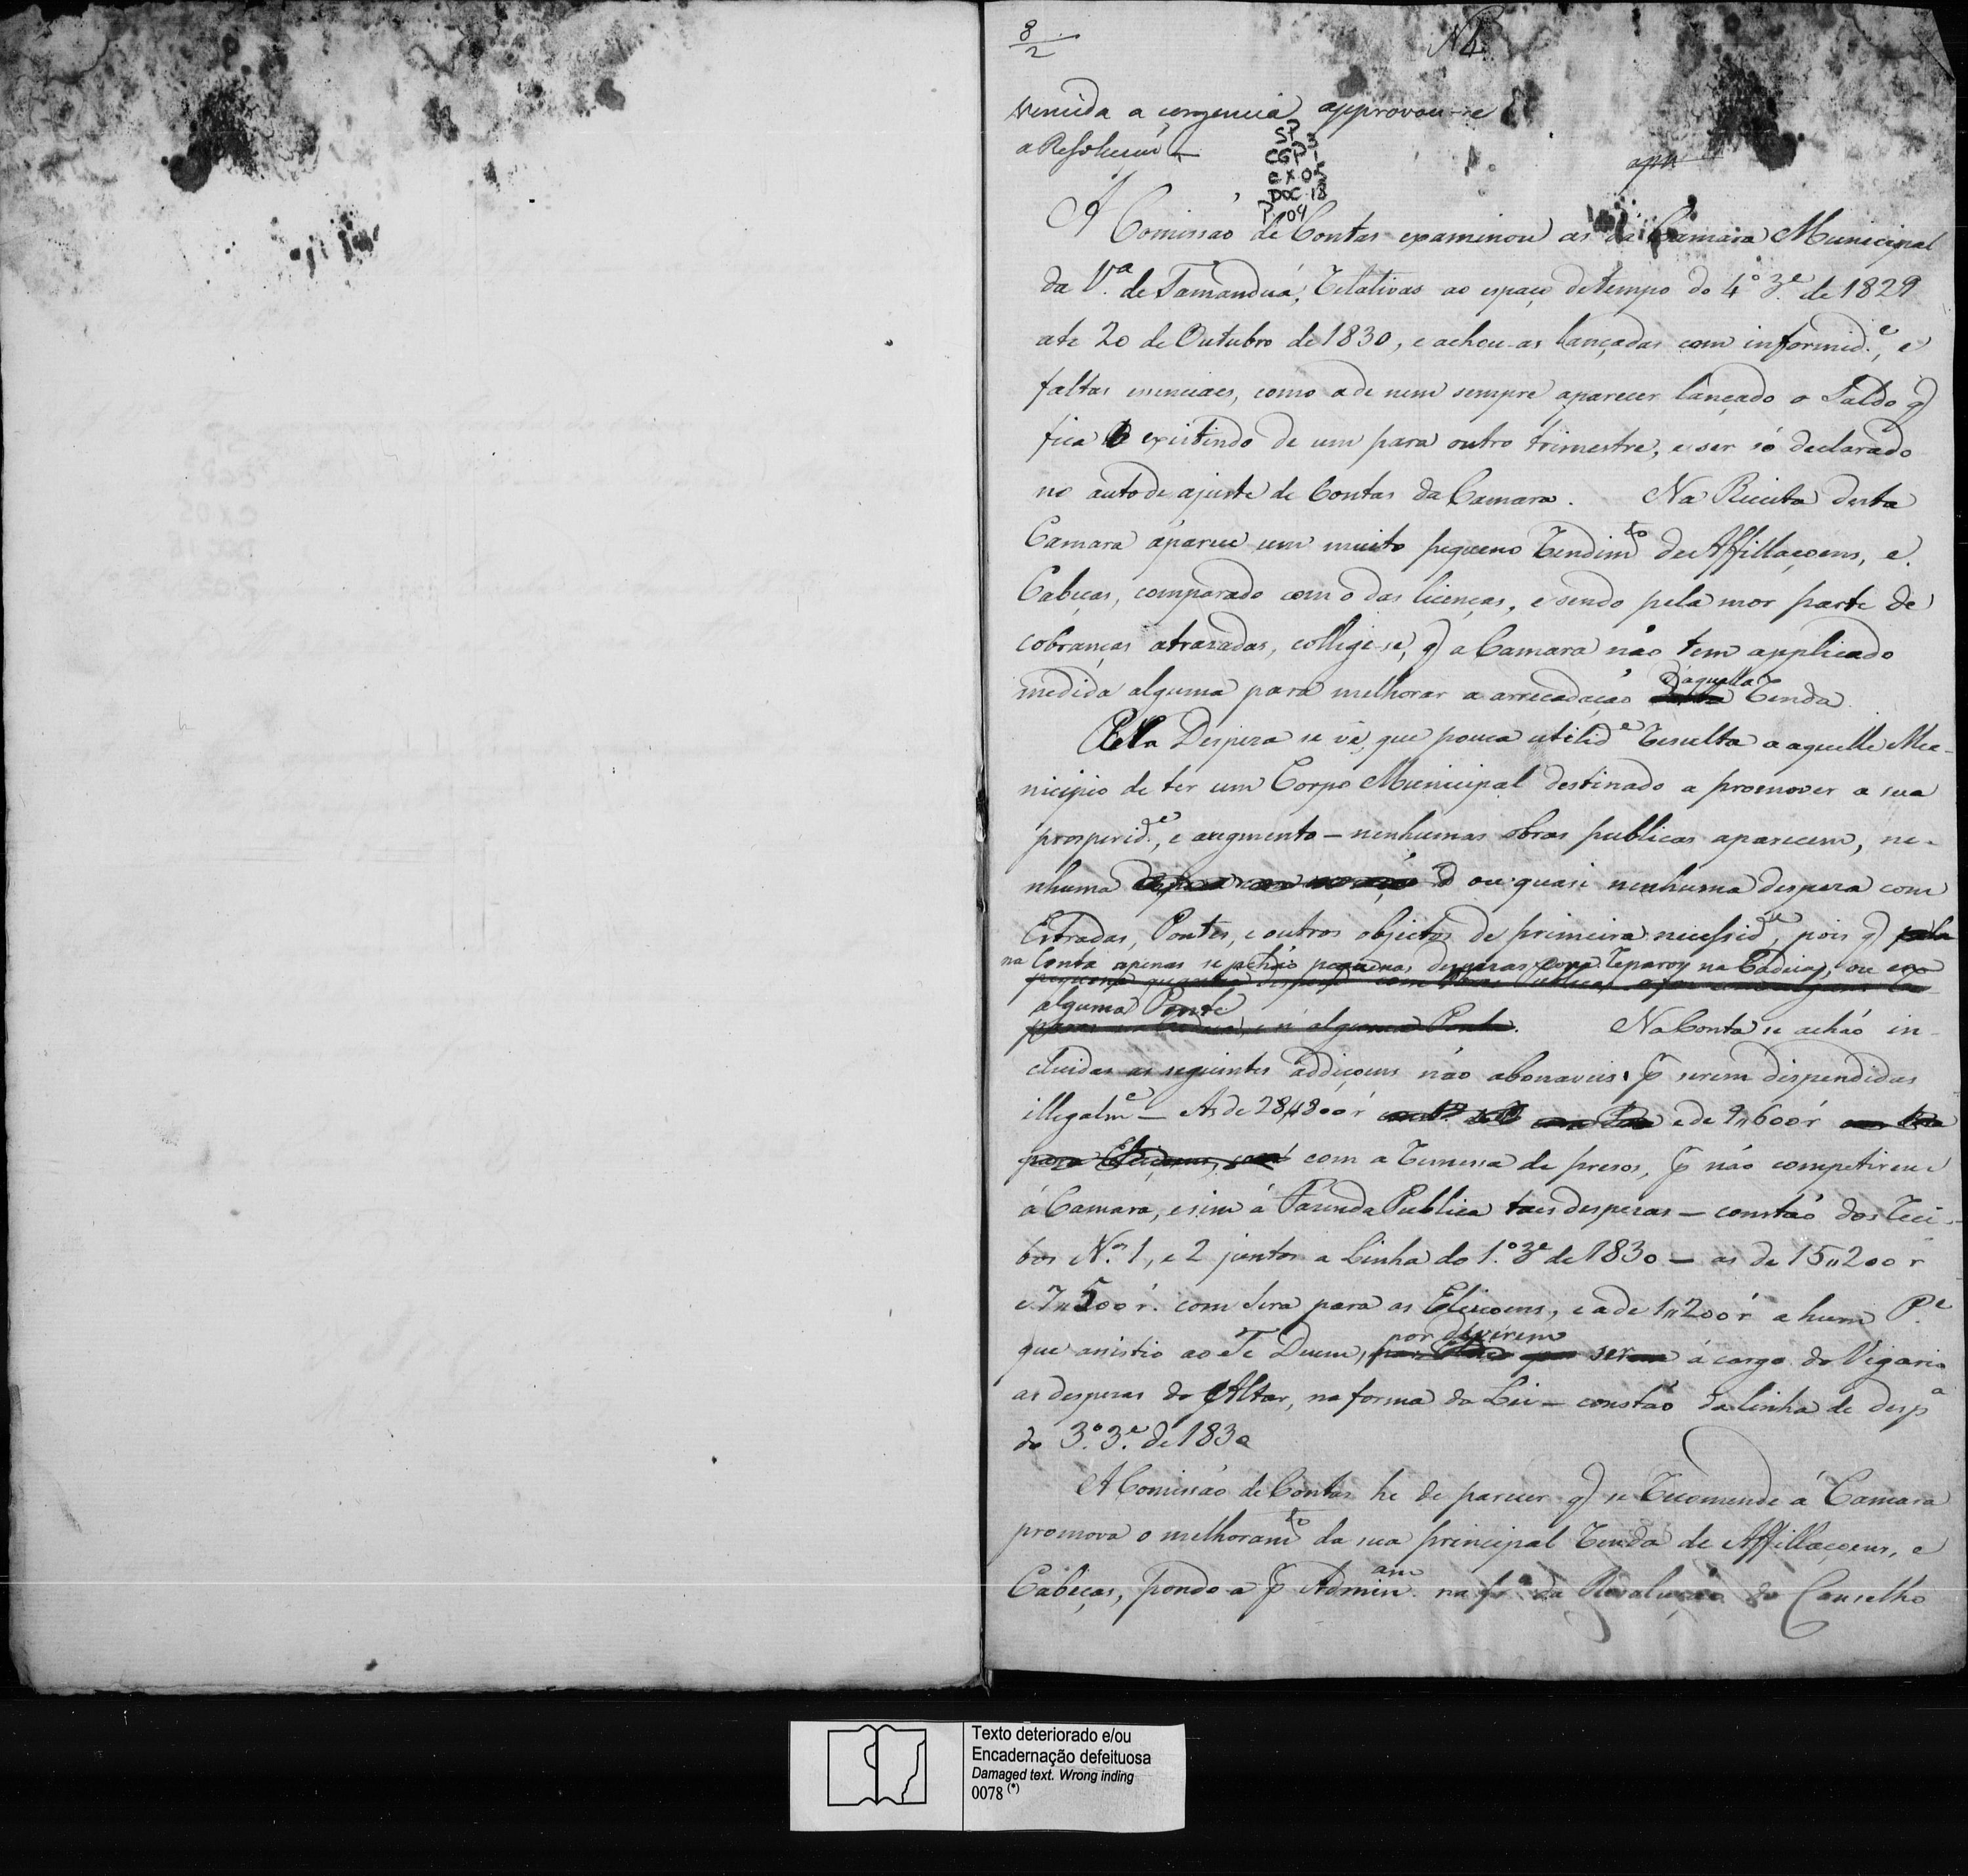 8/2
vencida a urgencia approvou-se
a Resolucam —
SP 3
CGP 1
CX 05
DOC. 18
P. 04
A Comissaõ de Contas examinou as da Camara Municipal
da V.ª de Tamanduá, relativas ao espaço de tempo do 4º 3.e de 1829
ate 20 de Outubro de 1830, e achou-as lançadas com informid.e, e
faltas essenciaes, como a de nem sempre aparecer lançado o Saldo q
fica existindo de um para outro trimestre, e ser só declarado
no auto de ajuste de Contas da Camara. Na Receita desta
Camara aparece um muito pequeno rendim.to de Affillaçoens, e
Cabeças, comparado com o das licenças, e sendo pela mor parte de
cobranças atrazadas, collige-se, q a Camara não tem applicado
medida alguma para melhorar a arrecadação d'aquella renda.
Pela Despeza se vê, que pouca utilid.e resulta a aquelle Mu-
nicipio de ter um Corpo Municipal destinado a promover a sua
prosperid.e, e augmento — nenhumas obras publicas aparecem, ne-
nhuma ou quasi nenhuma despeza com
Estradas, Pontes, e outros objectos de primeira necessid.e, pois q
na Conta apenas se achão pequenas despezas com reparos na Cadeia, ou em
alguma Ponte
Na Conta se achão in-
cluidas as seguintes addiçoens não abonaveis p serem dispendidas
illegalm.e — As de 28,,800 r e de 9,,600 r
com a remessa de presos, p não competirem
á Camara, e sim á Fazenda Publica taes despezas — constão dos reci-
bos N.os 1, e 2 juntos a Linha do 1.º 3.e de 1830 — as de 15,,200 r
e 7,,500 r. com Sera para as Eleiçoens, e a de 1,,200 r a hum P.e
que assistio ao Te Deum, por deverem ser á cargo do Vigario
as despezas do Altar, na forma da Lei — constão da linha de desp.a
do 3.º 3.e de 1830
A Comissão de Contas he de parecer q se recomende á Camara
promova o melhoram.to da sua principal renda de Affillaçoens, e
Cabeças, pondo-a p Admin.am na fr.a da Resolução do Conselho
Texto deteriorado e/ou
Encadernação defeituosa
Damaged text. Wrong inding
0078 (*)